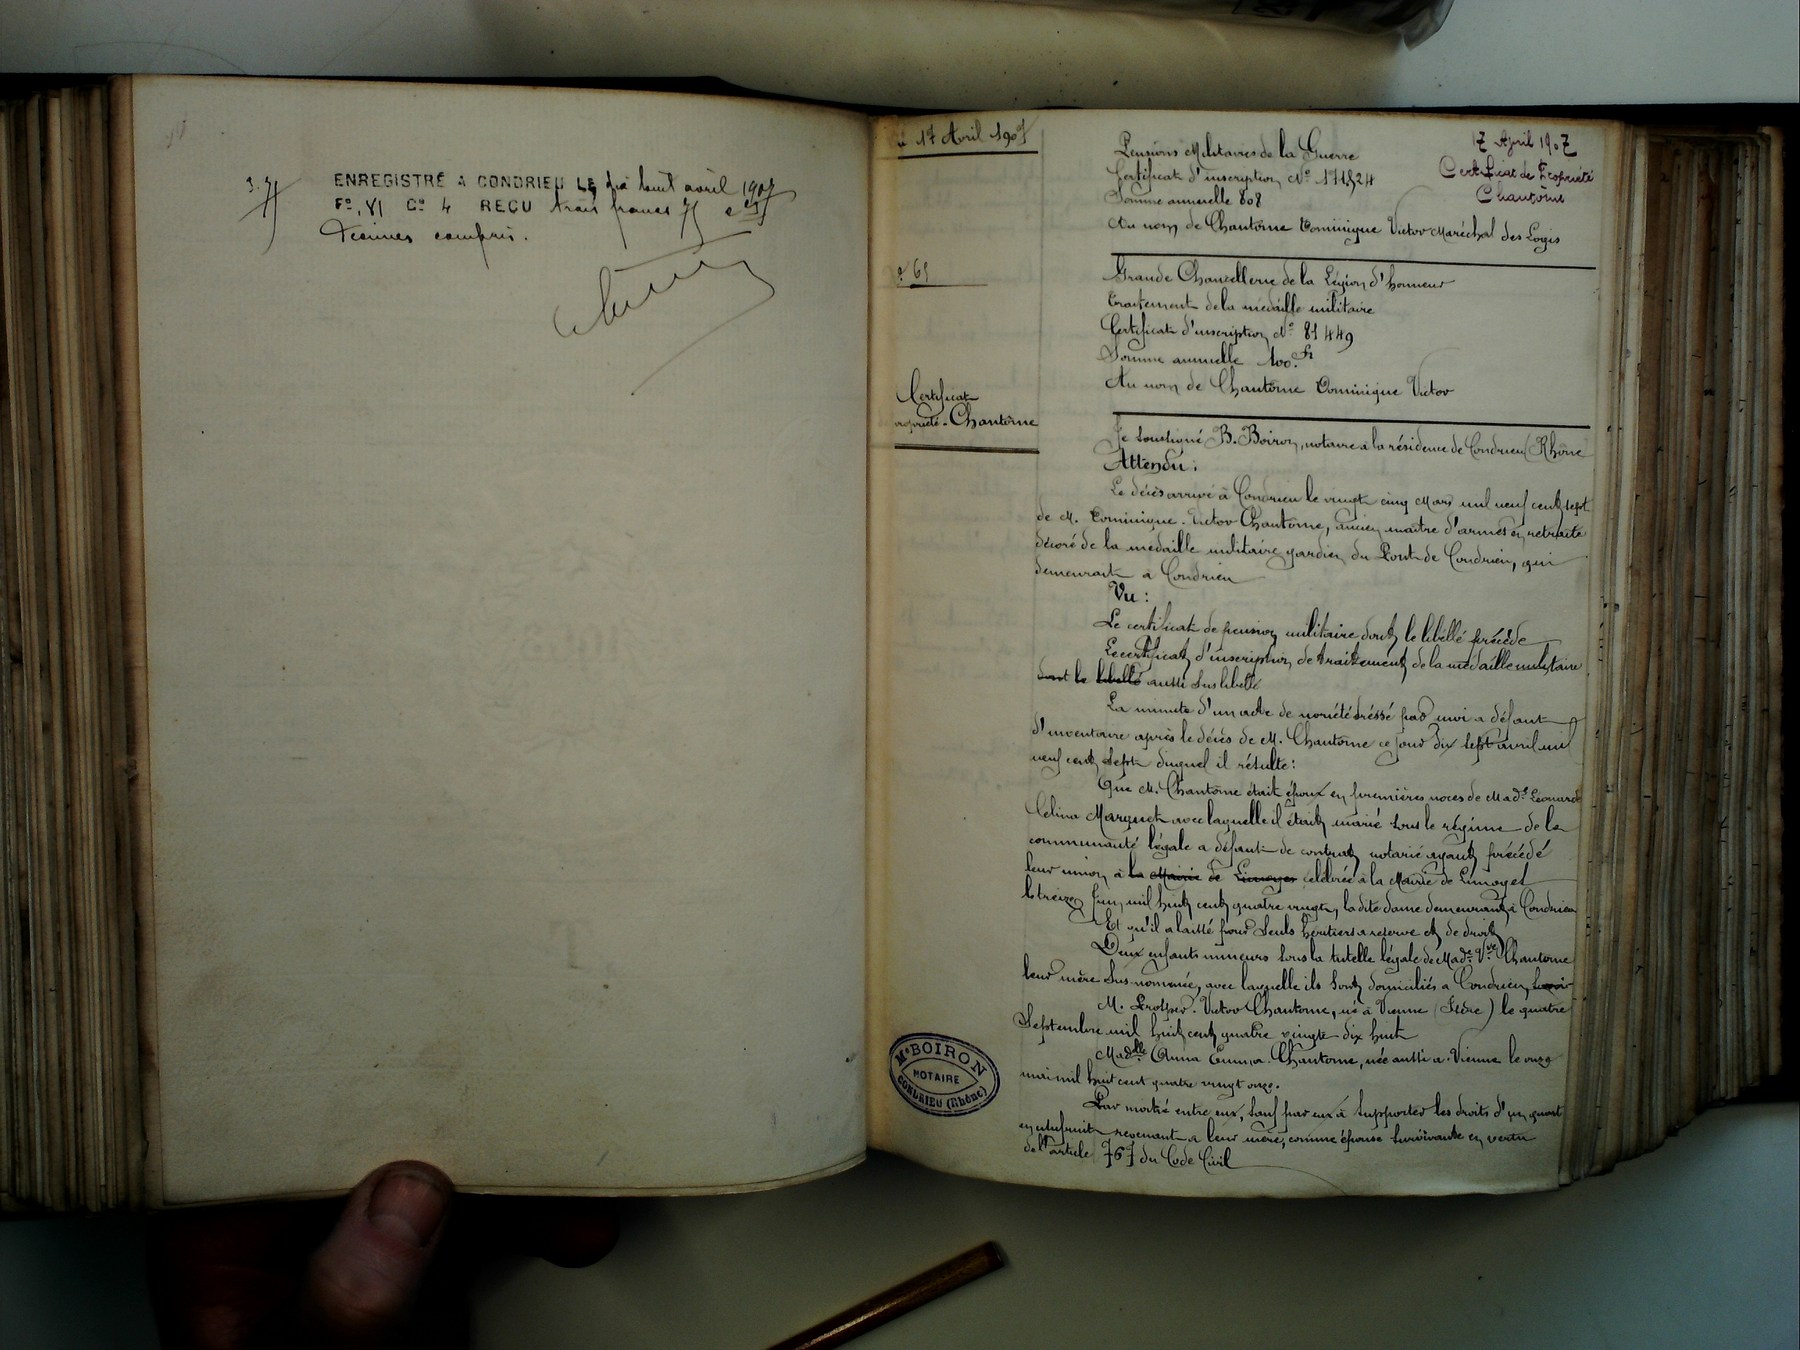 3.75
ENREGISTRÉ A CONDRIEU LE dix huit avril 1907
F°. 81 C° 4 REÇU trois francs 75 c
Décimes compris.
17 Avril 1907
N° 65
Certificat
propriété - Chantôme
17 April 1907
Certificat de Propriété
Chantôme
Pensions Militaires de la Guerre
Certificat d'inscription N°
Somme annuelle 808
Au nom de Chantôme Dominique Victor Maréchal des Logis
Grande Chancellerie de la Légion d'honneur
Traitement de la médaille militaire
Certificat d'inscription N° 81449
Somme annuelle 100. Fr
Au nom de Chantôme Dominique Victor
Je soussigné B. Boiron, notaire à la résidence de Condrieu (Rhône
Attendu :
Le décès arrivé à Condrieu le vingt cinq Mars mil neuf cent sept
de M. Dominique. Victor Chantôme, ancien maître d'armes en retraite
décoré de la médaille militaire gardien du Pont de Condrieu, qui
demeurait à Condrieu
Vu :
Le certificat de pension militaire dont le libellé précède
Le certificat d'inscription de traitement de la médaille militaire
dont le libellé aussi sus libellé
La minute d'un acte de noriété dréssé par moi a défaut
d'inventaire après le décès de M. Chantôme ce jour dix sept avril mil
neuf cent sept duquel il résulte :
Que M. Chantôme était époux en premières noces de Mad^e Léonarde
Célina Marquet avec laquelle il était marié sous le régime de la
communauté légale a défaut de contrat notarié ayant précédé
leur union à la Mairie de Limoges célébrée à la Mairie de Limoges
le treize Juin mil huit cent quatre vingt, la dite dame demeurant à Condrieu
Et qu'il a laissé pour seuls héritiers a réserve et de droit
Deux enfants mineurs sous la tutelle légale de Mad^e V^ve Chantôme
leur mère sus nommée, avec laquelle ils sont domiciliés a Condrieu, savoir
M. Prosper. Victor Chantôme, né à Vienne (Isère) le quatre
Septembre mil huit cent quatre vingt dix huit
Mad^elle Anna Emma. Chantôme, née aussi a Vienne le onze
mai mil huit cent quatre vingt onze.
Par moitié entre eux, sauf par eux à supporter les droits d'un quart
en usufruit revenant a leur mère, comme épouse survivante en vertu
de l'article 767 du Code Civil
M^e BOIRON
NOTAIRE
CONDRIEU (Rhône)